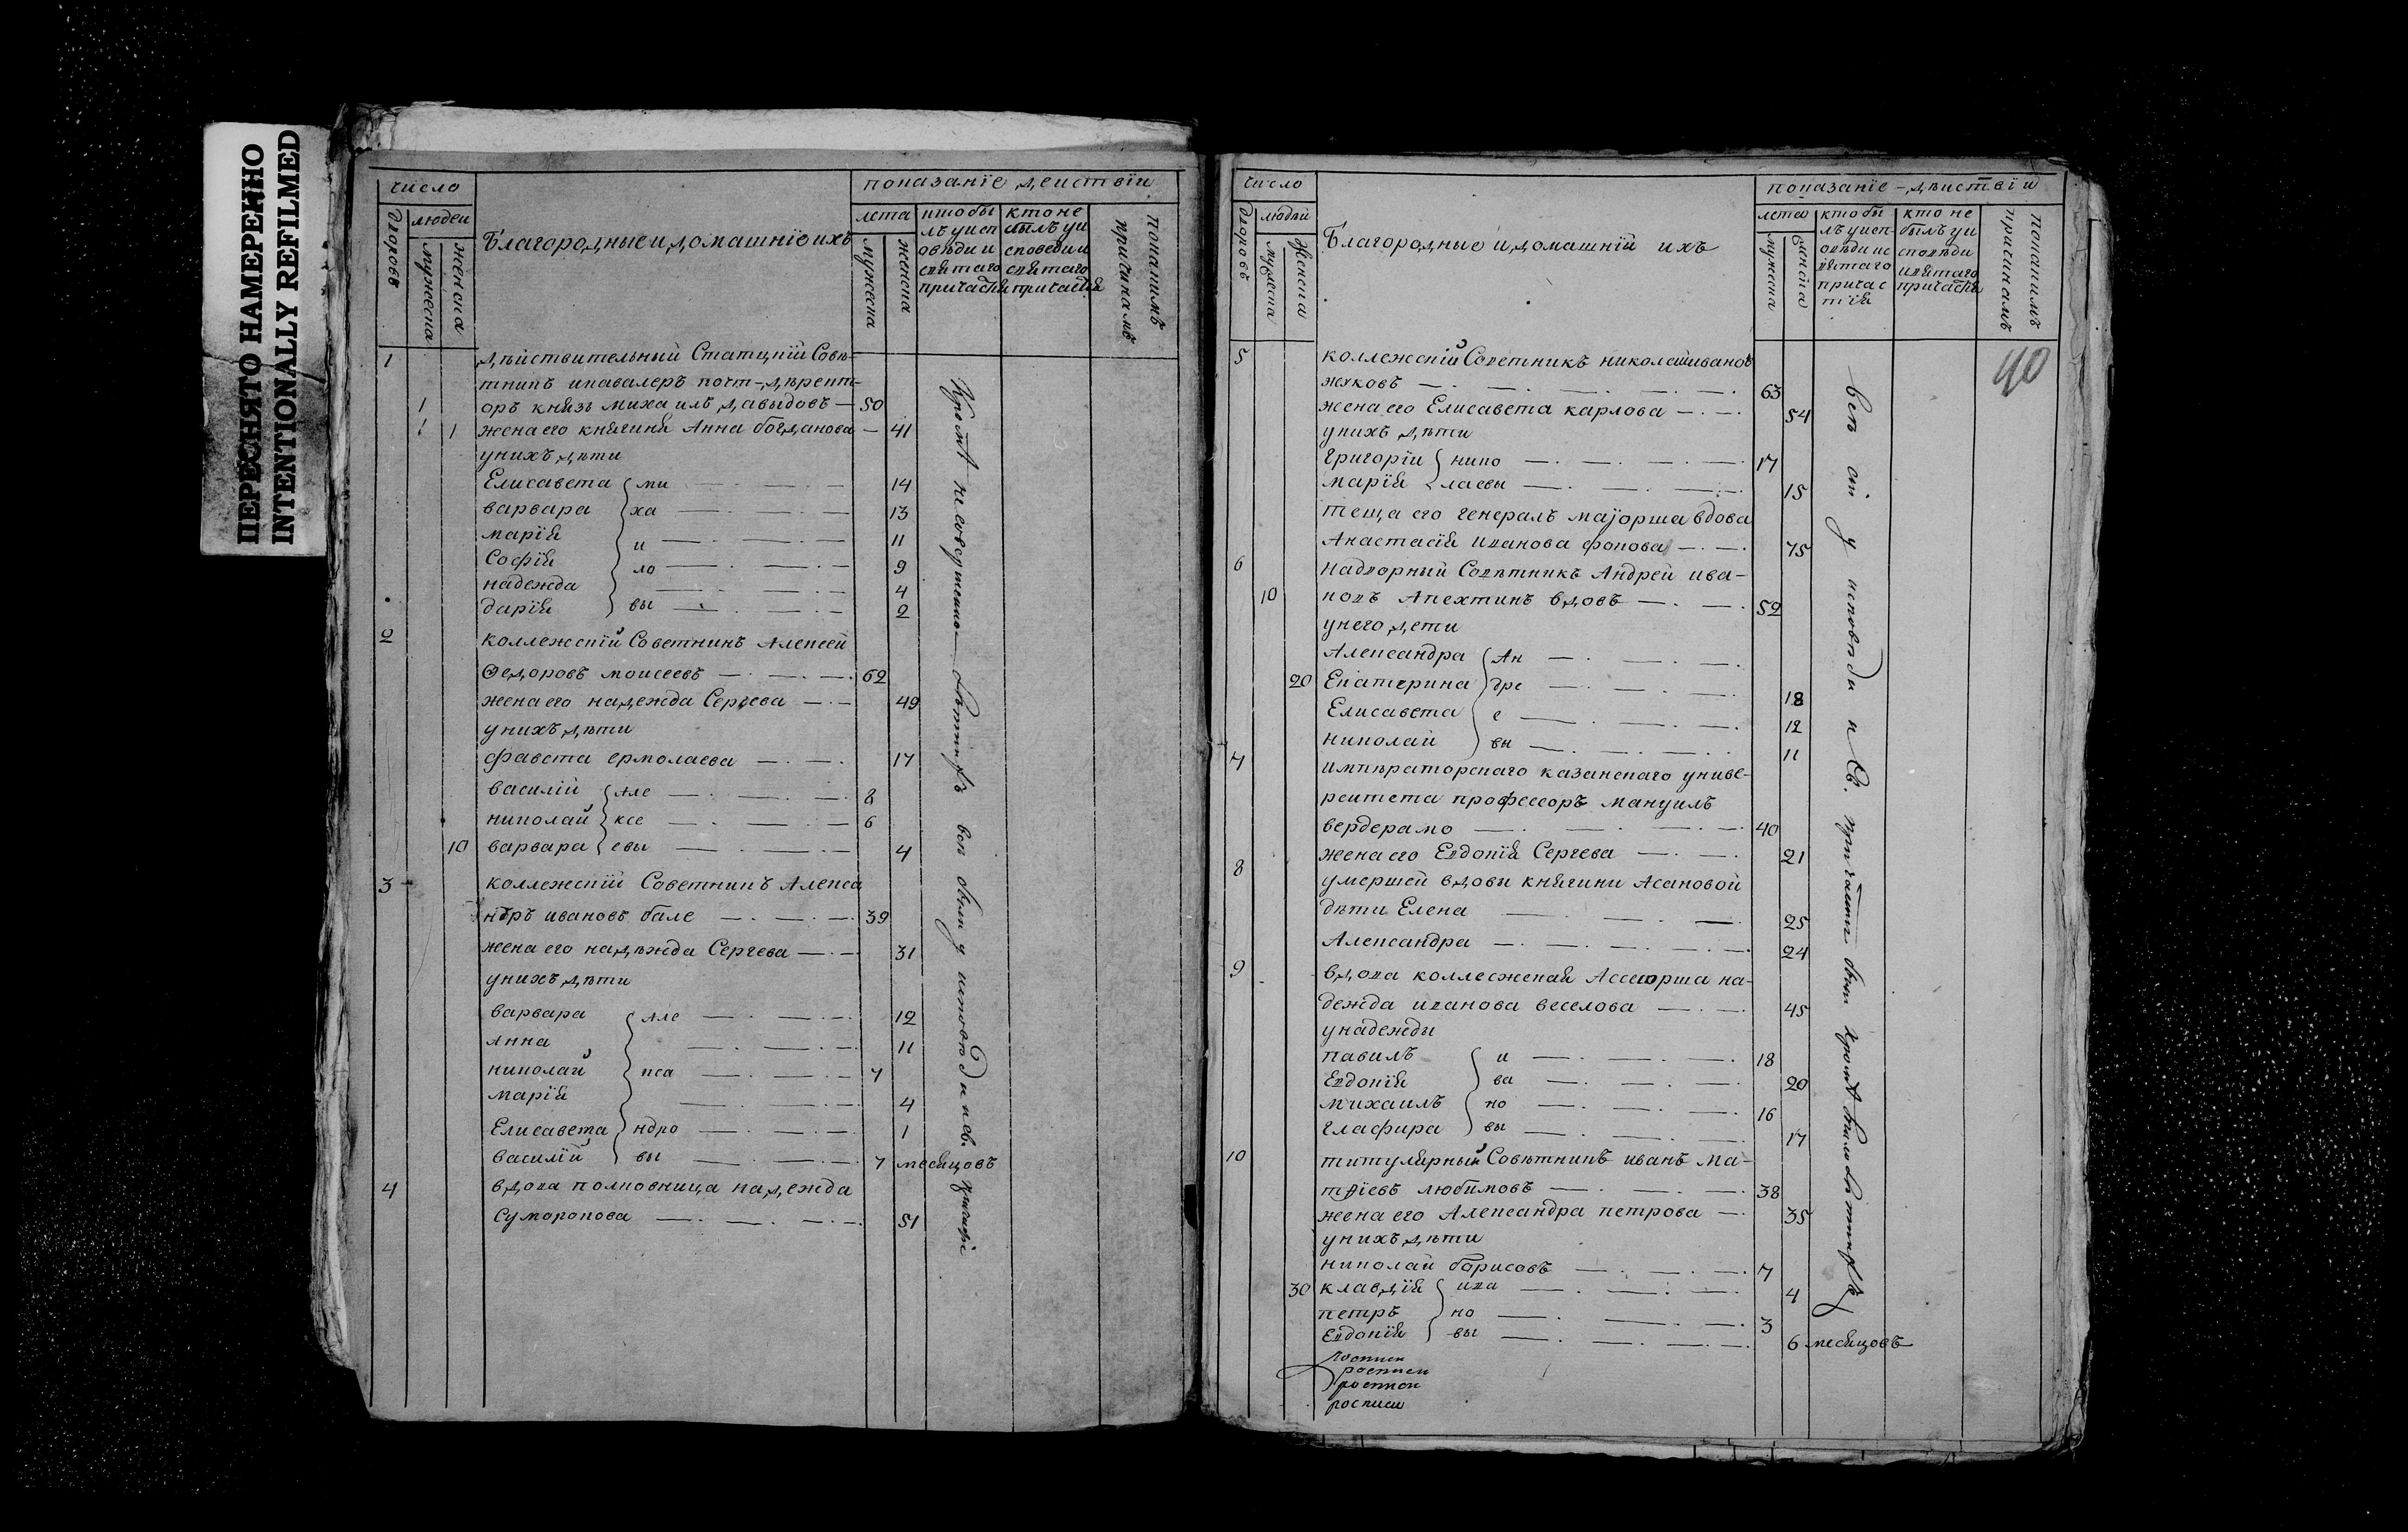 ПЕРЕСНЯТО НАМЕРЕННО
INTENTIONALLY REFILMED
число
показанiе деиствiи
дворовъ
людеи
мужеска
женска
Благородные и домашнiе ихъ
лета
мужеска
женска
кто бы
лъ у исп
овѣди и
святаго
причастiя
кто не
былъ у и
споведи и
святаго
причастiя
по какимъ
причинамъ
1
дѣйствительный Статцкiй Совѣ-
тникъ и кавалеръ почт-дѣрект-
1 оръ князь михаилъ давыдовъ — 50
1 1 жена его княгиня Анна богданова — 41
у нихъ дѣти
Елисавета ми 14
варвара ха 13
марiя и 11
Софiя ло 9
надежда 4
дарiя вы 2
2 коллежскiй Советникъ Алексей
Федоровъ моисеевъ 62
жена его надежда Сергева 49
у нихъ дѣти
фавста ермолаева 17
василiй але 8
николай ксе 6
10 варвара евы 4
3 коллежскiй Советникъ Алекса
ндръ ивановъ бале 39
жена его надѣжда Сергева 31
у нихъ дѣти
варвара але 12
Анна 11
николай кса 7
марiя 4
Елисавета ндро 1
василiй вы 7 месяцовъ
4 вдова полковница надежда
Суморокова 51
Кромѣ несовершенно-лѣтнихъ все были у исповѣди и св.
число
показанiе-дѣиствiи
дворовъ
людѣй
мужеска
женска
Благородные и домашнiй ихъ
лета
мужеска
женска
кто бы
лъ у исп-
овѣди и с
вятаго
причас
тiя
кто не
былъ у и
сповѣди
и святаго
причастiя
по какимъ
причинамъ
40
5 коллежскiй Советникъ николай ивановъ
жуковъ 63
жена его Елисавета карлова 54
у нихъ дѣти
григорiи нико 17
марiя лаевы 15
теща его генералъ маiорша вдова
Анастасiя иванова фокова 75
6 надворный Совѣтникъ Андрей ива-
10 новъ Апехтинъ вдовъ 52
у него дети
Александра Ан
20 Екатерина дре 18
Елисавета е 12
николай вы 11
7 импѣраторскаго казанскаго униве-
рситета профессоръ мануилъ
вердерамо 40
жена его Евдокiя Сергева 21
8 умершей вдовы княгини Асановой
дѣти Елена 25
Александра 24
9 вдова коллежская Ассесорша на-
дежда иванова веселова 45
у надежды
павилъ и 18
Евдокiя ва 20
михаилъ но 16
глафира вы 17
10 титулярный Совѣтникъ иванъ ма-
тфiевъ любимовъ 38
жена его Александра петрова 35
у нихъ дѣти
николай борисовъ 7
30 клавдiя ива 4
петръ но 3
Евдокiя вы 6 месяцовъ
все у исповѣди и Св. причастiя были
росписи
росписи
росписи
росписи